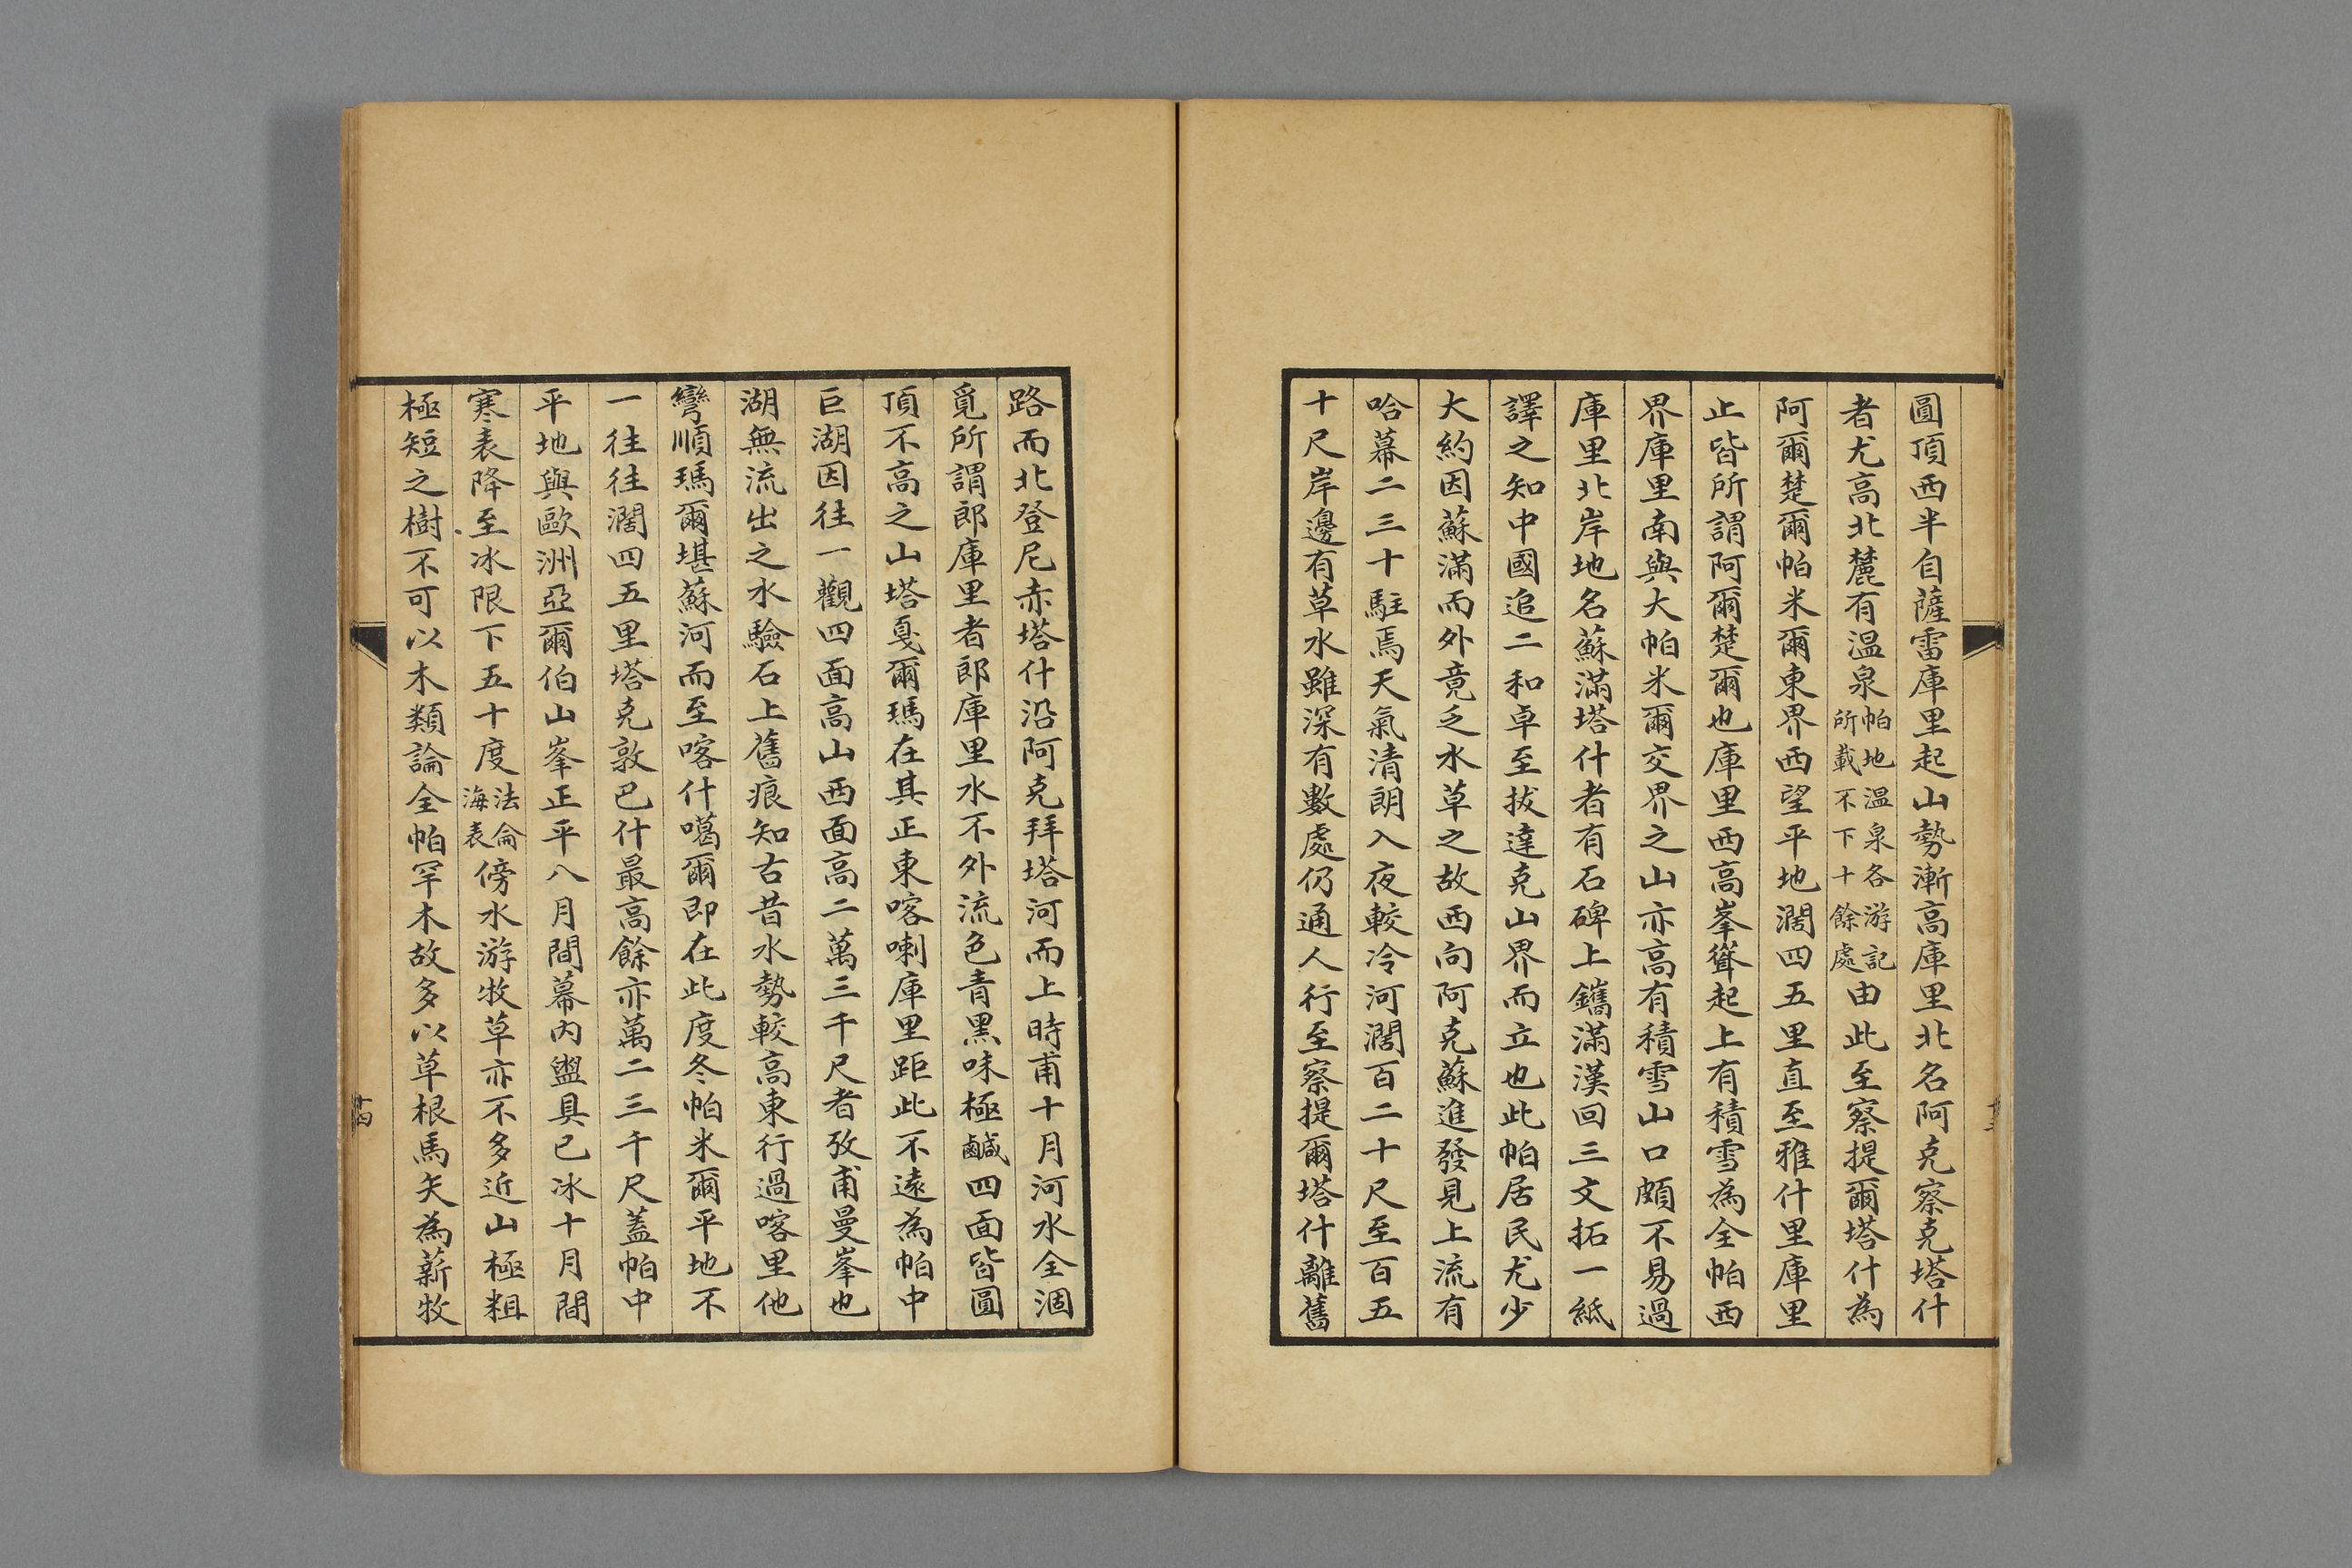 圓頂西半自薩雷庫里起山勢漸高庫里北名阿克察克塔什
者尤高北麓有溫泉帕地溫泉各游記所載不下十餘處由此至察提爾塔什為
阿爾楚爾帕米爾東界西望平地濶四五里直至雅什里庫里
止皆所謂阿爾楚爾也庫里西高峯聳起上有積雪為全帕西
界庫里南與大帕米爾交界之山亦高有積雪山口頗不易過
庫里北岸地名蘇滿塔什者有石碑上鐫滿漢回三文拓一紙
譯之知中國追二和卓至拔達克山界而立也此帕居民尤少
大約因蘇滿而外竟乏水草之故西向阿克蘇進發見上流有
哈幕二三十駐焉天氣清朗入夜較冷河濶百二十尺至百五
十尺岸邊有草水雖深有數處仍通人行至察提爾塔什離舊
路而北登尼赤塔什沿阿克拜塔河而上時甫十月河水全涸
覓所謂郎庫里者郎庫里水不外流色青黑味極鹹四面皆圓
頂不高之山塔戛爾瑪在其正東喀喇庫里距此不遠為帕中
巨湖因往一觀四面高山西面高二萬三千尺者攷甫曼峯也
湖無流出之水驗石上舊痕知古昔水勢較高東行過喀里他
彎順瑪爾堪蘇河而至喀什噶爾即在此度冬帕米爾平地不
一往往濶四五里塔克敦巴什最高餘亦萬二三千尺蓋帕中
平地與歐洲亞爾伯山峯正平八月間幕內盥具已冰十月間
寒表降至冰限下五十度法倫海表傍水游牧草亦不多近山極粗
極短之樹不可以木類論全帕罕木故多以草根馬矢為薪牧
十四